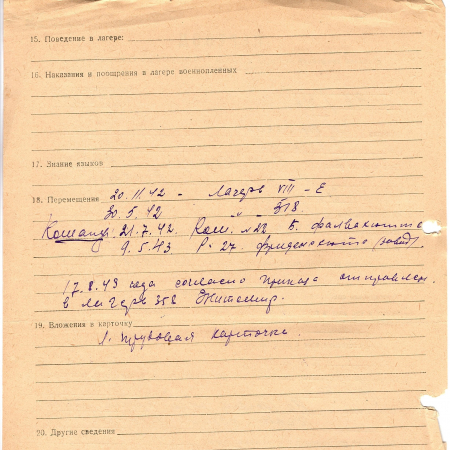 15. Поведение в лагере:
16. Наказания и поощрения в лагере военнопленных
17. Знание языков
18. Перемещения 20.11.42 - Лагерь VIII - Е
30.5.42 " 318
Команды: 21.7.42. Ком. №22 Б.
9.5.43 Р. 27.
17.8.43 года согласно приказа отправлен
в лагерь 358 Житомир.
19. Вложения в карточку
1. трудовая карточка
20. Другие сведения